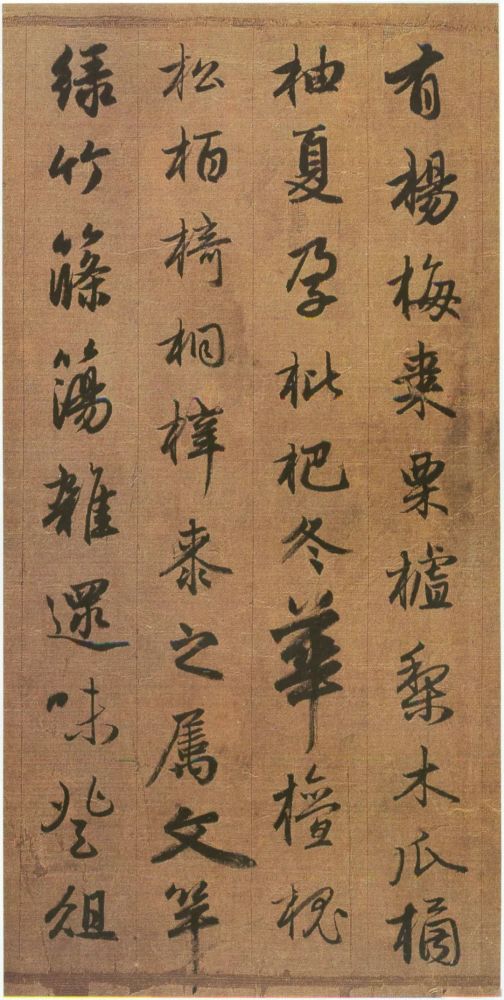 有楊梅棗栗樝梨木瓜橘
柚夏孕枇杷冬華檀槐
松栢椅桐梓桼之属文竿
緑竹篠簜雜遝味登俎